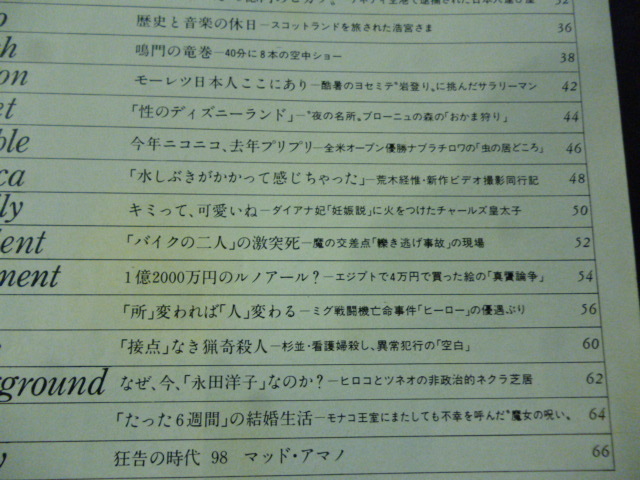 32
歴史と音楽の休日—スコットランドを旅された浩宮さま 36
鳴門の竜巻—40分に8本の空中ショー 38
モーレツ日本人ここにあり—酷暑のヨセミテ“岩登り”に挑んだサラリーマン 42
「性のディズニーランド」—“夜の名所”ブローニュの森の「おかま狩り」 44
今年ニコニコ、去年プリプリ—全米オープン優勝ナブラチロワの「虫の居どころ」 46
「水しぶきがかかって感じちゃった」—荒木経惟・新作ビデオ撮影同行記 48
キミって、可愛いね—ダイアナ妃「妊娠説」に火をつけたチャールズ皇太子 50
「バイクの二人」の激突死—魔の交差点「轢き逃げ事故」の現場 52
1億2000万円のルノアール?—エジプトで4万円で買った絵の「真贋論争」 54
「所」変われば「人」変わる—ミグ戦闘機亡命事件「ヒーロー」の優遇ぶり 56
「接点」なき猟奇殺人—杉並・看護婦殺し、異常犯行の「空白」 60
ground なぜ、今、「永田洋子」なのか?—ヒロコとツネオの非政治的ネクラ芝居 62
「たった6週間」の結婚生活—モナコ王室にまたしても不幸を呼んだ“魔女の呪い” 64
狂告の時代 98 マッド・アマノ 66